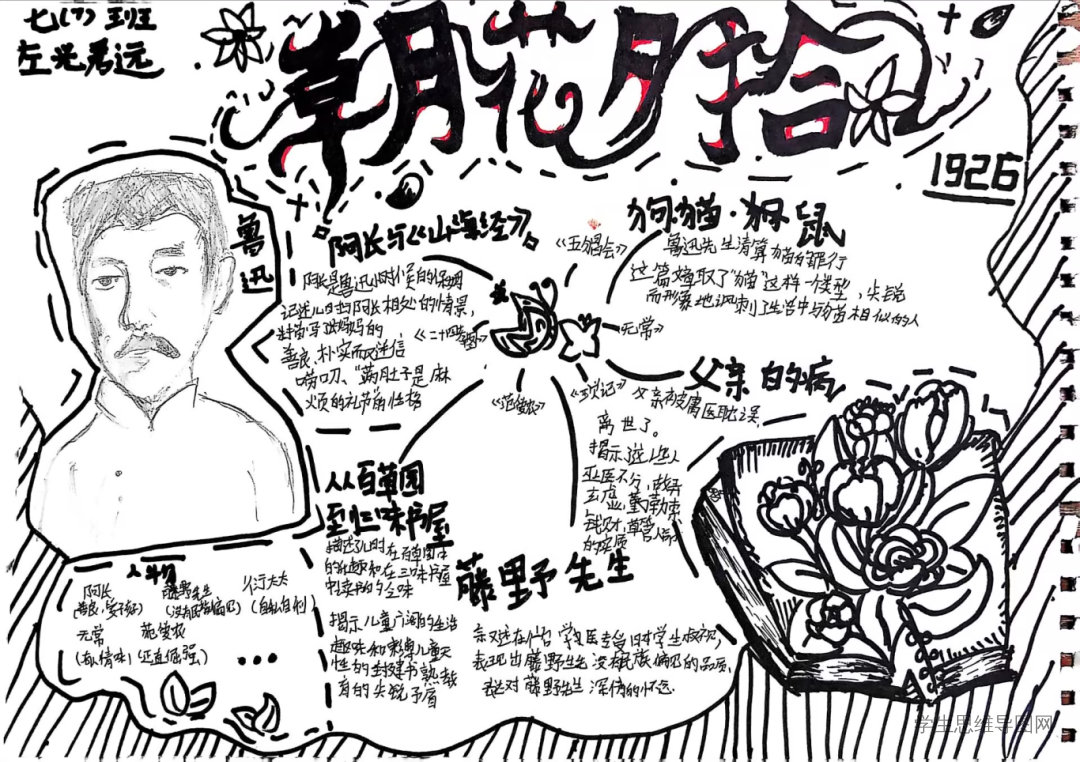 七(7)班
左光君远
朝花夕拾
1926
鲁迅
阿长与《山海经》
阿长是鲁迅小时候的保姆
记述儿时与阿长相处的情景,
善良、朴实而又迷信
唠叨、"满肚子是麻
烦的礼节"的性格
《五猖会》
《二十四孝图》
《无常》
《范爱农》
《琐记》
狗·猫·鼠
鲁迅先生清算猫的罪行
这篇
取了"猫"这样一个类型,尖锐
而形象地讽刺了生活中与猫相似的人
父亲的病
父亲被庸医耽误
离世了。
揭示了
巫医不分,
勒索
钱财,草菅人命
的实质
从百草园
到三味书屋
描述儿时在百草园中
的乐趣和在三味书屋
揭示儿童广阔的生活
趣味和
儿童天
性的封建书塾教
育的尖锐矛盾
藤野先生
学医
日本学生
表现出藤野先生没有民族偏见的品质,
表达对藤野先生深情的怀念
人物
阿长
(善良、
)
藤野先生
(没有民族偏见)
衍太太
(自私自利)
无常
(有人情味)
范爱农
(正直倔强)
...
学生思维导图网